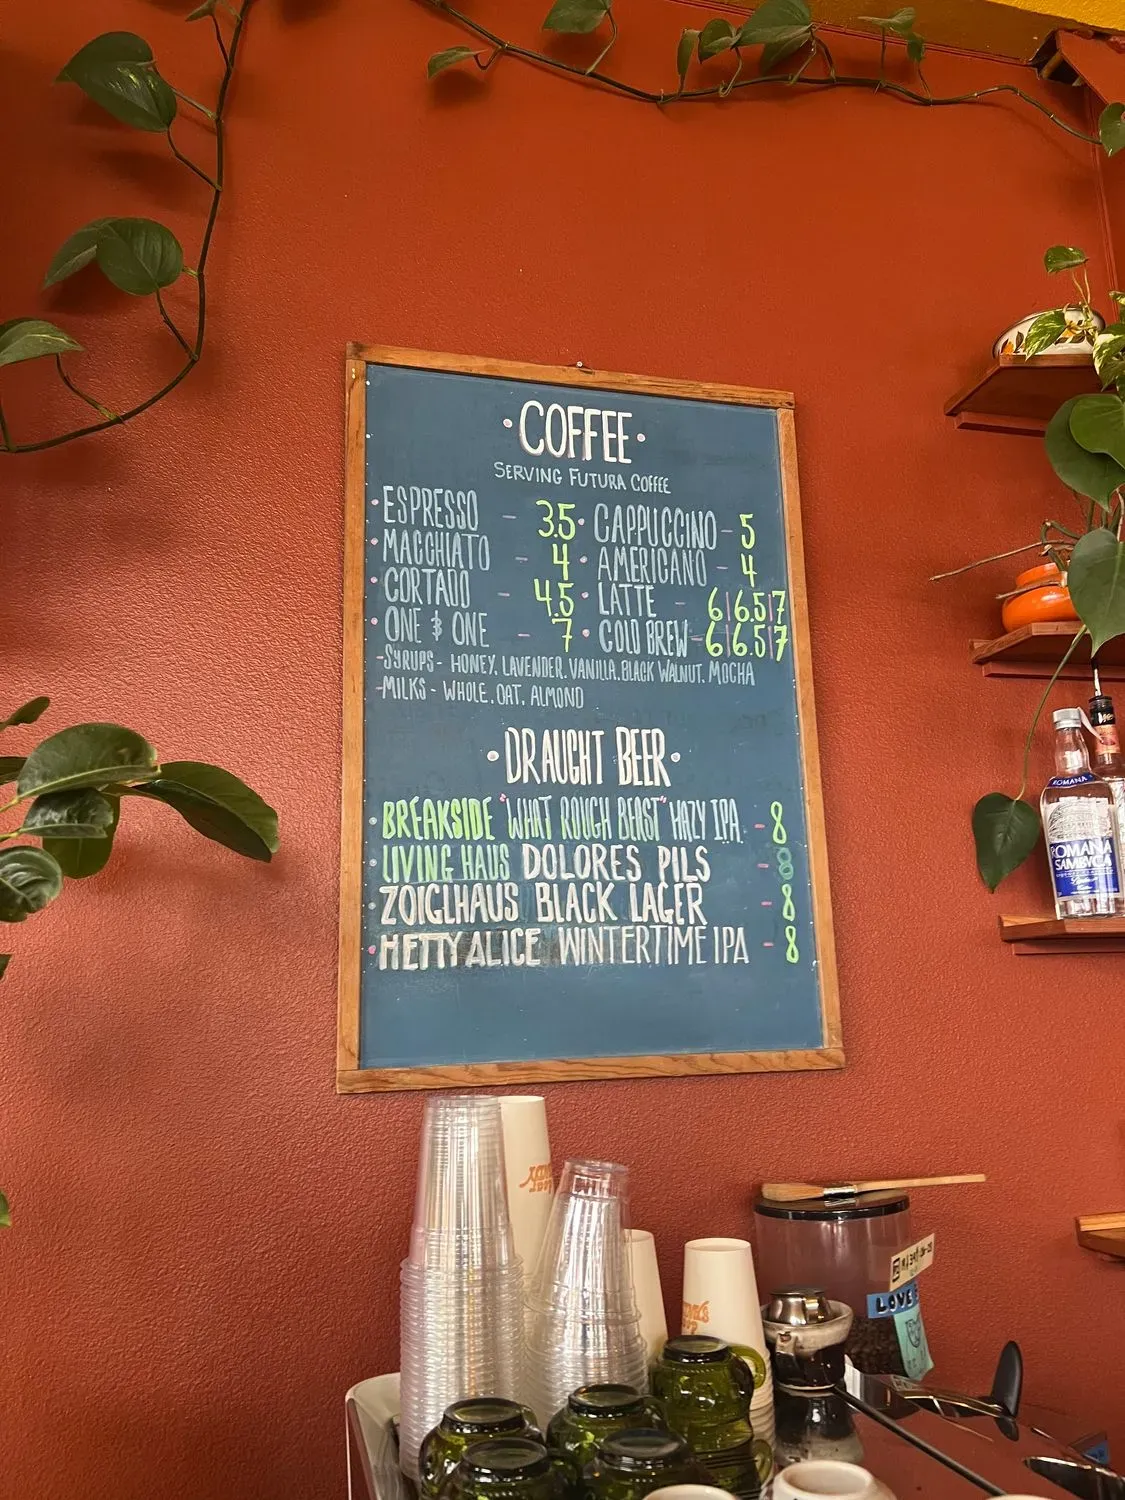 ·COFFEE·
SERVING FUTURA COFFEE
·ESPRESSO - 3.5
·MACCHIATO - 4
·CORTADO - 4.5
·ONE & ONE - 7
·CAPPUCCINO - 5
·AMERICANO - 4
·LATTE - 6|6.5|7
·COLD BREW - 6|6.5|7
-SYRUPS - HONEY. LAVENDER. VANILLA. BLACK WALNUT. MOCHA
-MILKS - WHOLE. OAT. ALMOND
·DRAUGHT BEER·
·BREAKSIDE "WHAT ROUGH BEAST" HAZY IPA - 8
·LIVING HAUS DOLORES PILS - 8
·ZOIGLHAUS BLACK LAGER - 8
·HETTY ALICE WINTERTIME IPA - 8
ROMANA
ROMANA
SAMBVCA
LOVE